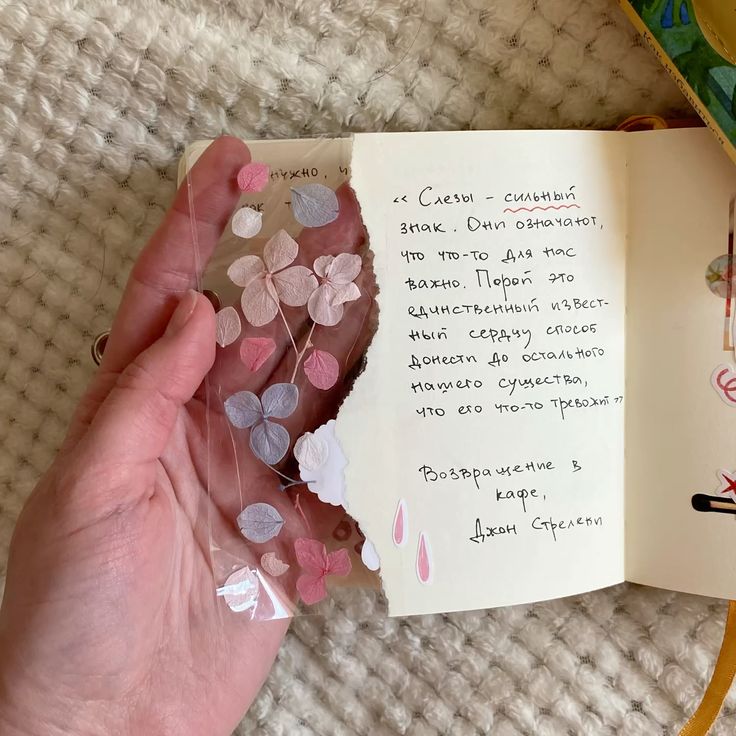 нужно, ч
« Слезы - сильный
знак. Они означают,
что что-то для нас
важно. Порой это
единственный извест-
ный сердцу способ
донести до остального
нашего существа,
что его что-то тревожит »
Возвращение в
кафе,
Джон Стрелеки